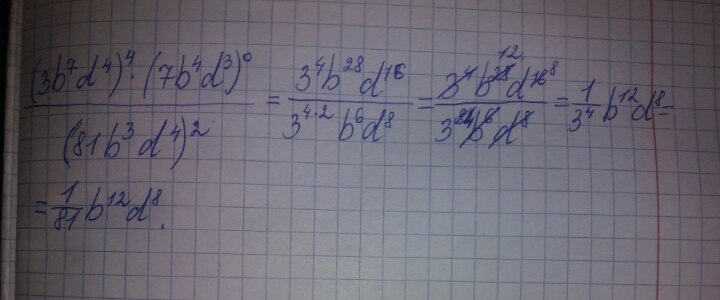 (3b⁷d⁴)⁴·(7b⁴d³)⁰ / (81b³d⁴)² = 3⁴b²⁸d¹⁶ / 3⁴·²b⁶d⁸ = 3⁴b²⁸ ¹²d¹⁶ ⁸ / 3⁸ ⁴b⁶d⁸ = 1/3⁴ b¹²d⁸ =
= 1/81 b¹²d⁸.